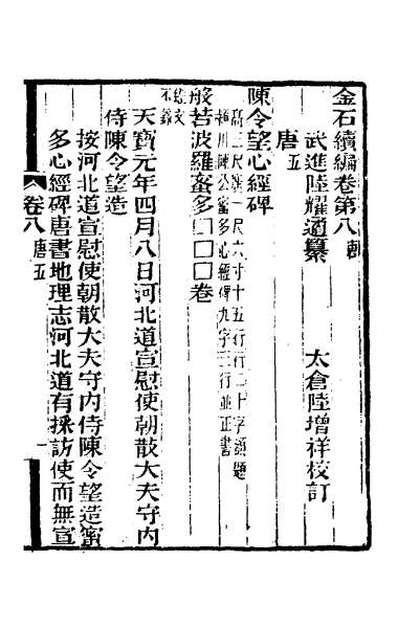 金石續編卷第八
武進陸耀遹纂 太倉陸增祥校訂
唐五
陳令望心經碑
高三尺廣一尺六寸十五行行二十字額題
潁川陳公蜜多心經碑九字三行並正書
般若波羅蜜多□□□卷
經文不錄
天寶元年四月八日河北道宣慰使朝散大夫守內
侍陳令望造
按河北道宣慰使朝散大夫守內侍陳令望造蜜
多心經碑唐書地理志河北道有採訪使而無宣
卷八 唐五 一